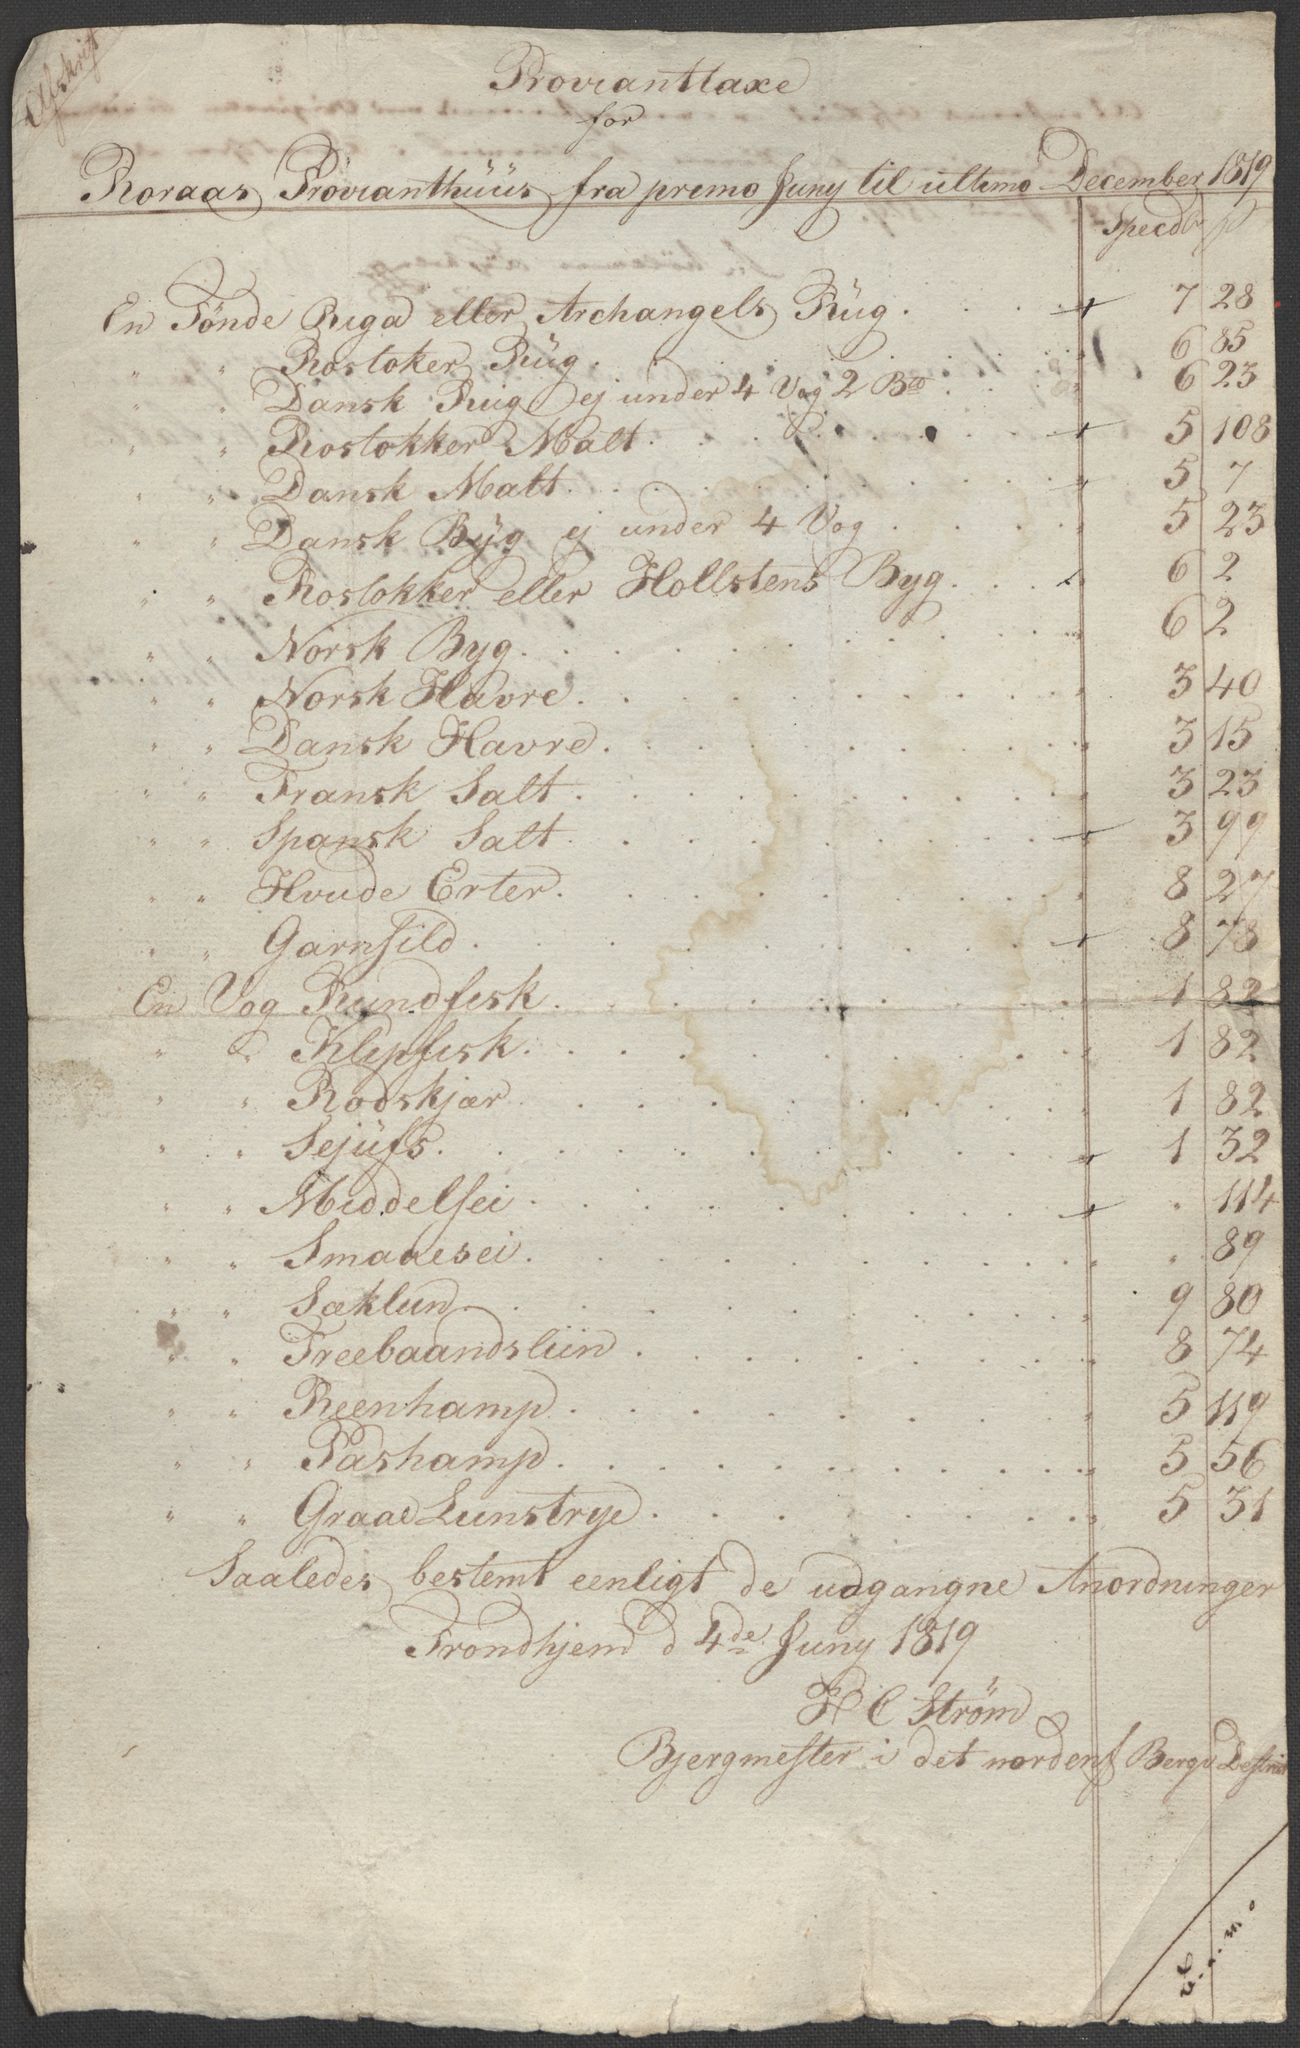 Afskrift
Provianttaxe
for
Roraas Provianthuus fra premo Juny til ultimo December 1819
Specdlr ß
En Tönde Riga eller Archangels Rug . . . 7 28
" " Rostoker Rug . . . 6 85
" " Dansk Rug ej under 4 Vog 2 Bd . . . 6 23
" " Rostokker Malt . . . 5 108
" " Dansk Malt . . . 5 7
" " Dansk Byg ej under 4 Vog . . . 5 23
" " Rostokker eller Hollstens Byg . . . 6 2
" " Norsk Byg . . . 6 2
" " Norsk Havre . . . 3 40
" " Dansk Havre . . . 3 15
" " Fransk Salt . . . 3 23
" " Spansk Salt . . . 3 99
" " Hvide Erter . . . 8 27
" " Garnsild . . . 8 78
En Vog Rundfisk . . . 1 82
" " Klipfisk . . . 1 82
" " Rodskjær . . . 1 82
" " Sejufs . . . 1 32
" " Middelsei . . . " 114
" " Smaaesei . . . " 89
" " Sæklun . . . 9 80
" " Treebaandsliin . . . 8 74
" " Reenhamp . . . 5 119
" " Pashamp . . . 5 56
" " Graae Lunstrye . . . 5 31
Saaledes bestemt eenligt de udgangne Anordninger
Trondhjem d 4de Juny 1819
H C Ström
Bjergmester i det nordenf Bergv Destrict